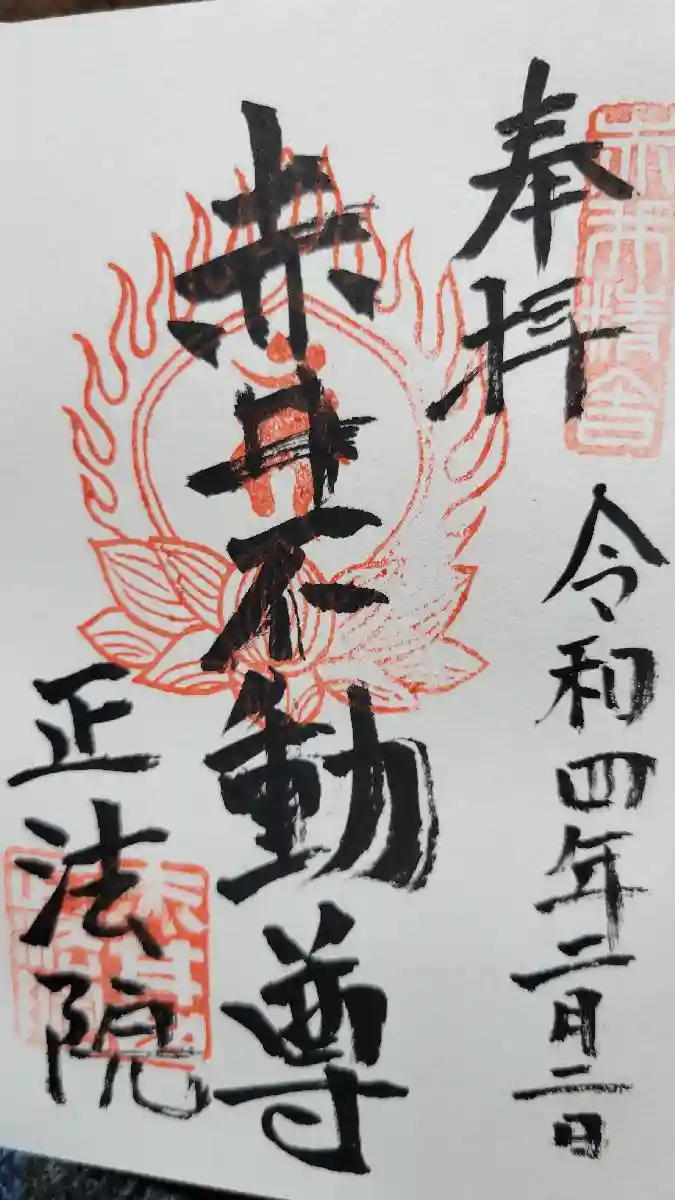 奉拝
令和四年二月二日
赤井不動尊
正法院